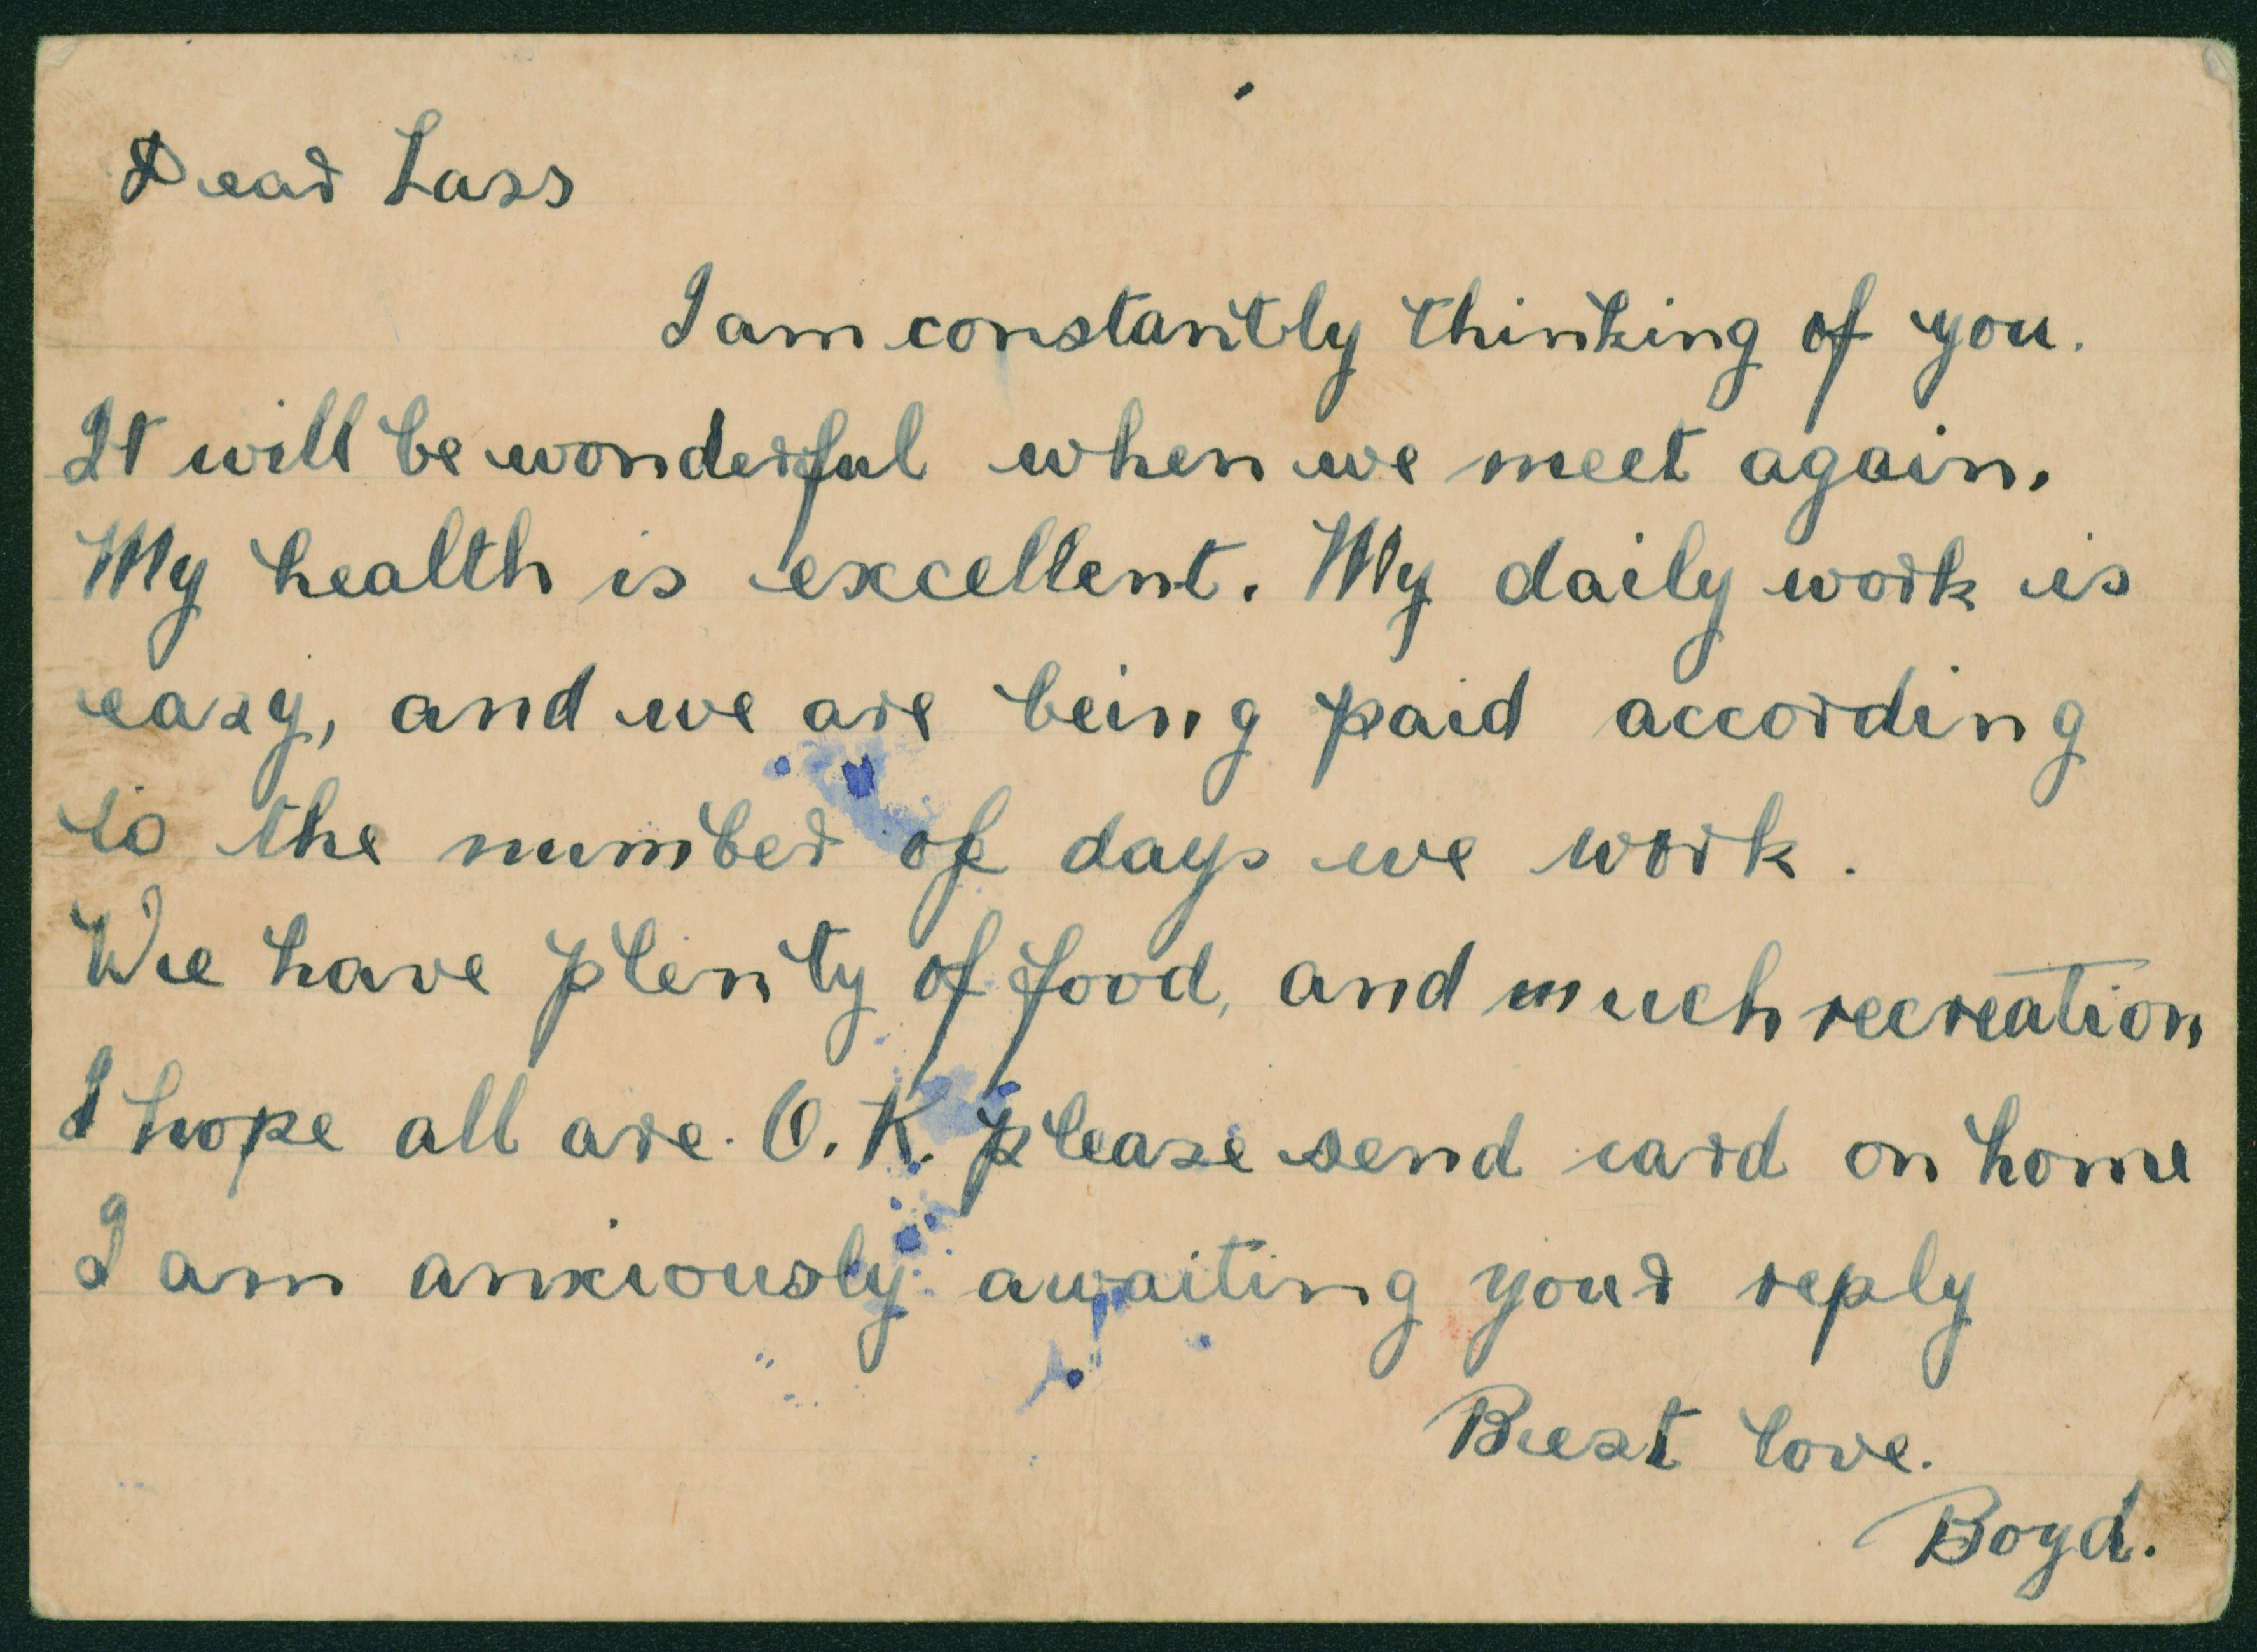 Dear Lass
I am constantly thinking of you.
It will be wonderful when we meet again.
My health is excellent. My daily work is
easy, and we are being paid according
to the number of days we work.
We have plenty of food, and much recreation
I hope all are. O.K. please send card on home
I am anxiously awaiting your reply
Best love.
Boyd.